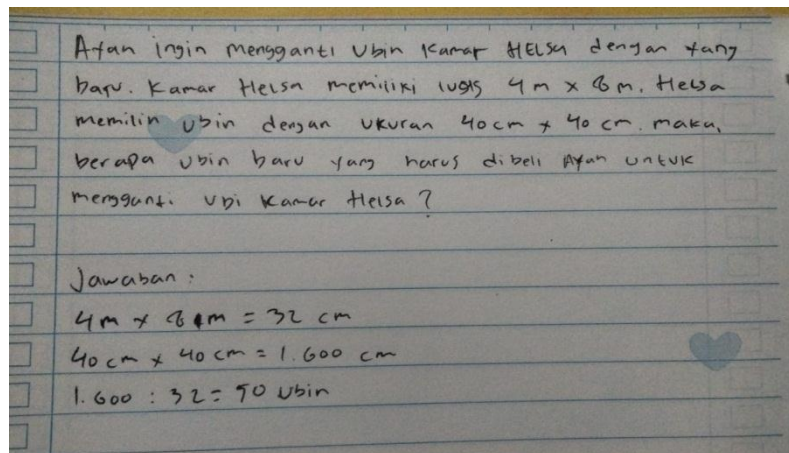 Ayan ingin mengganti ubin kamar HELSA dengan yang
baru. Kamar Helsa memiliki luas 4 m x 8 m. Helsa
memilih ubin dengan ukuran 40 cm x 40 cm. maka,
berapa ubin baru yang harus dibeli Ayan untuk
mengganti ubi kamar Helsa?
Jawaban:
4 m x 8 m = 32 cm
40 cm x 40 cm = 1.600 cm
1.600 : 32 = 50 ubin